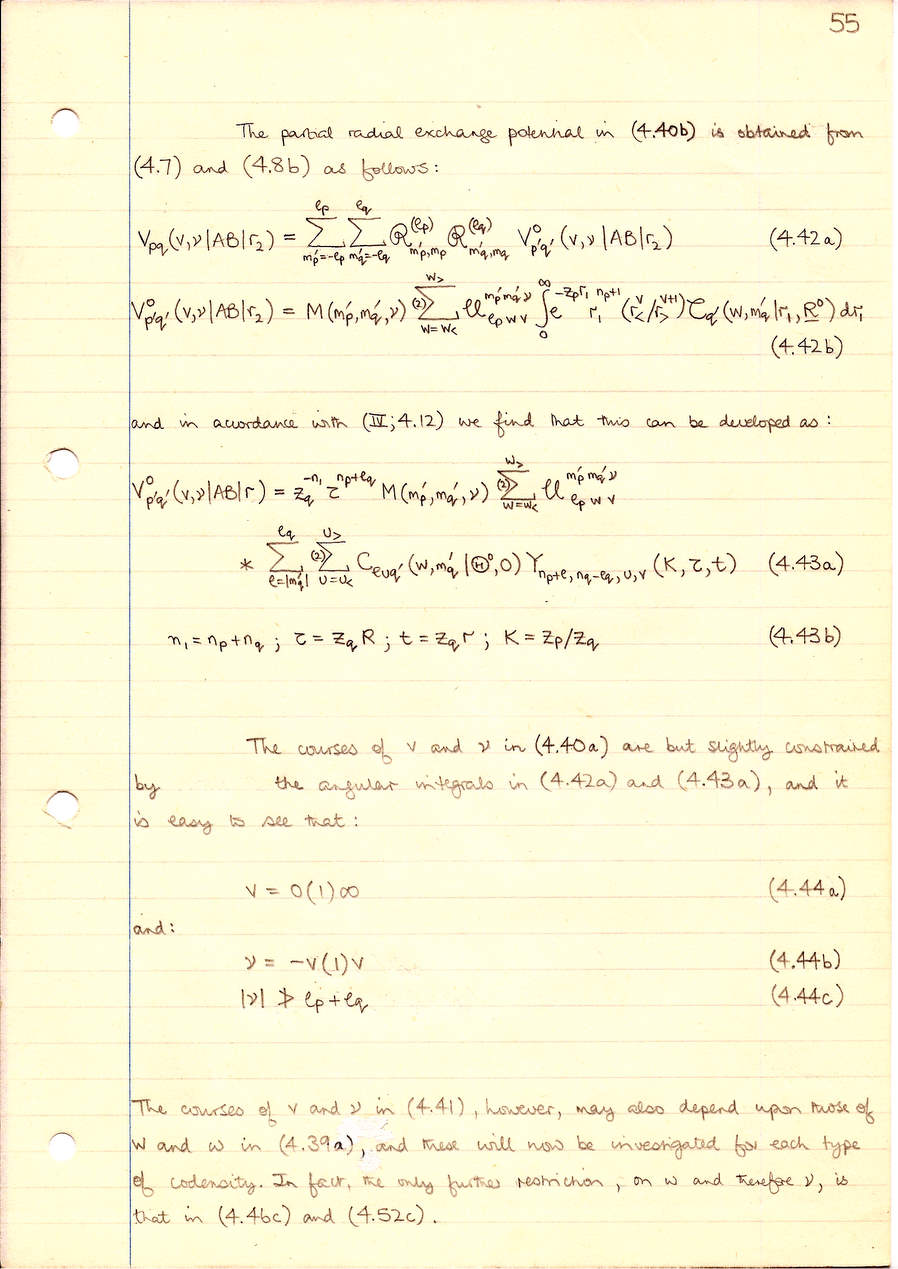 55
The partial radial exchange potential in (4.40b) is obtained from
(4.7) and (4.8b) as follows:
V_{pq}(v,ν|AB|r₂) = ∑_{m′_p=-ℓ_p}^{ℓ_p} ∑_{m′_q=-ℓ_q}^{ℓ_q} ℛ^{(ℓ_p)}_{m′_p,m_p} ℛ^{(ℓ_q)}_{m′_q,m_q} V⁰_{p′q′}(v,ν|AB|r₂) (4.42a)
V⁰_{p′q′}(v,ν|AB|r₂) = M(m′_p,m′_q,ν) ∑^{(2)}_{w=w_<}^{w_>} 𝒰^{m′_p m′_q ν}_{ℓ_p w v} ∫_0^∞ e^{-z_p r₁} r₁^{n_p+1} (r_<^v/r_>^{v+1}) 𝒯_{q′}(w,m′_q|r₁,R⁰) dr₁
(4.42b)
and in accordance with (IV;4.12) we find that this can be developed as:
V⁰_{p′q′}(v,ν|AB|r) = z_q^{-n₁} τ^{n_p+ℓ_q} M(m′_p,m′_q,ν) ∑^{(2)}_{w=w_<}^{w_>} 𝒰^{m′_p m′_q ν}_{ℓ_p w v}
* ∑_{ℓ=|m′_q|}^{ℓ_q} ∑^{(2)}_{u=u_<}^{u_>} C_{ℓuq′}(w,m′_q|Θ⁰,0) Y_{n_p+ℓ,n_q-ℓ_q,u,v}(K,τ,t) (4.43a)
n₁ = n_p+n_q ; τ = z_q R ; t = z_q r ; K = z_p/z_q (4.43b)
The courses of v and ν in (4.40a) are but slightly constrained
by the angular integrals in (4.42a) and (4.43a), and it
is easy to see that:
v = 0(1)∞ (4.44a)
and:
ν = -v(1)v (4.44b)
|ν| ≯ ℓ_p+ℓ_q (4.44c)
The courses of v and ν in (4.41), however, may also depend upon those of
W and ω in (4.39a), and these will now be investigated for each type
of codensity. In fact, the only further restriction, on ω and therefore ν, is
that in (4.46c) and (4.52c).